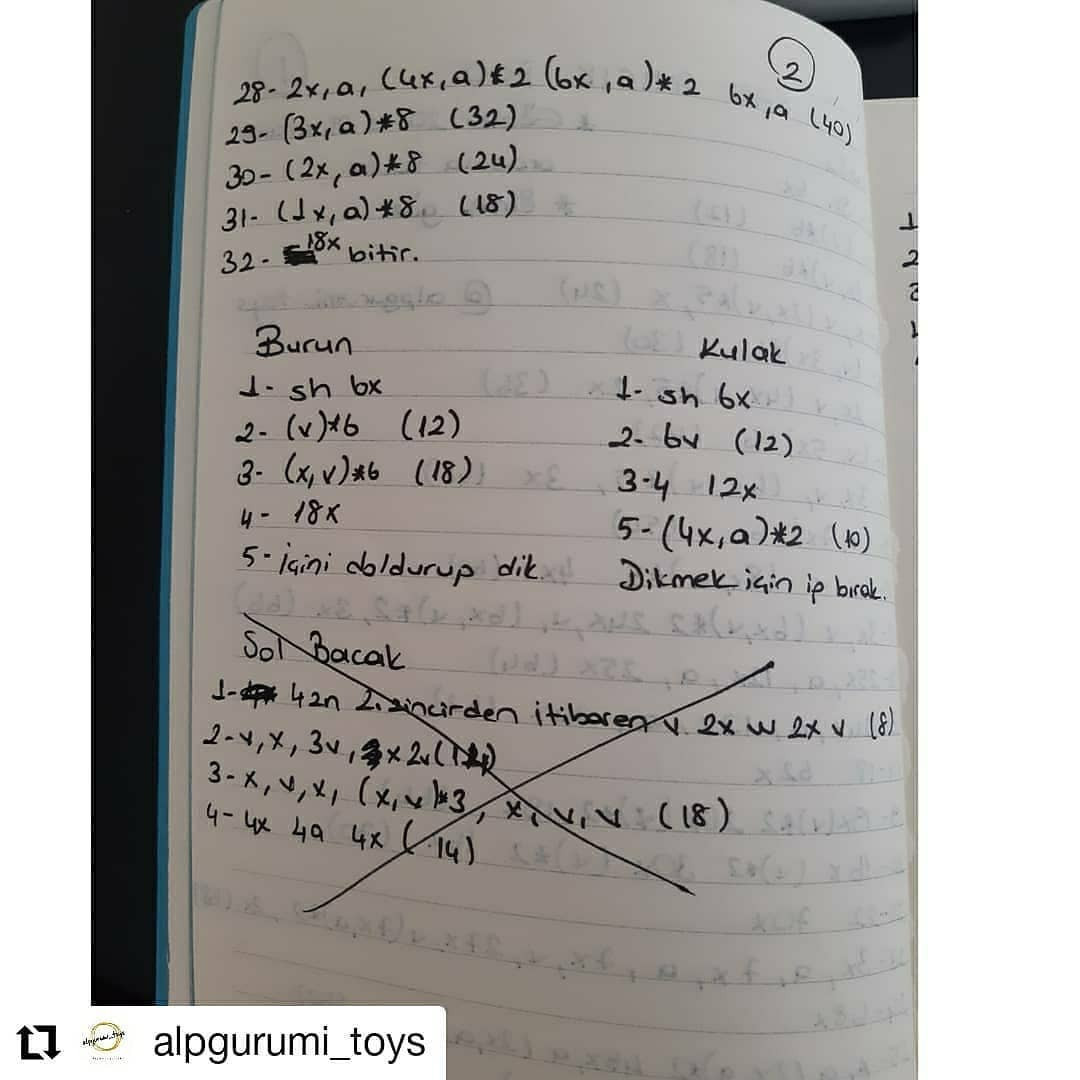 2
28- 2x, a, (4x, a)*2 (6x, a)*2 6x, a (40)
29- (3x, a)*8 (32)
30- (2x, a)*8 (24)
31- (1x, a)*8 (18)
32- 18x bitir.
Burun
1- sh 6x
2- (v)*6 (12)
3- (x, v)*6 (18)
4- 18x
5- içini doldurup dik.
Kulak
1- sh 6x
2- 6v (12)
3-4 12x
5- (4x, a)*2 (10)
Dikmek için ip bırak.
Sol Bacak
1- 4zn 2. zincirden itibaren v 2x w 2x v (8)
2- v, x, 3v, x 2v (14)
3- x, v, x, (x, v)*3, x, v, v (18)
4- 4x 4a 4x (14)
alpgurumi_toys